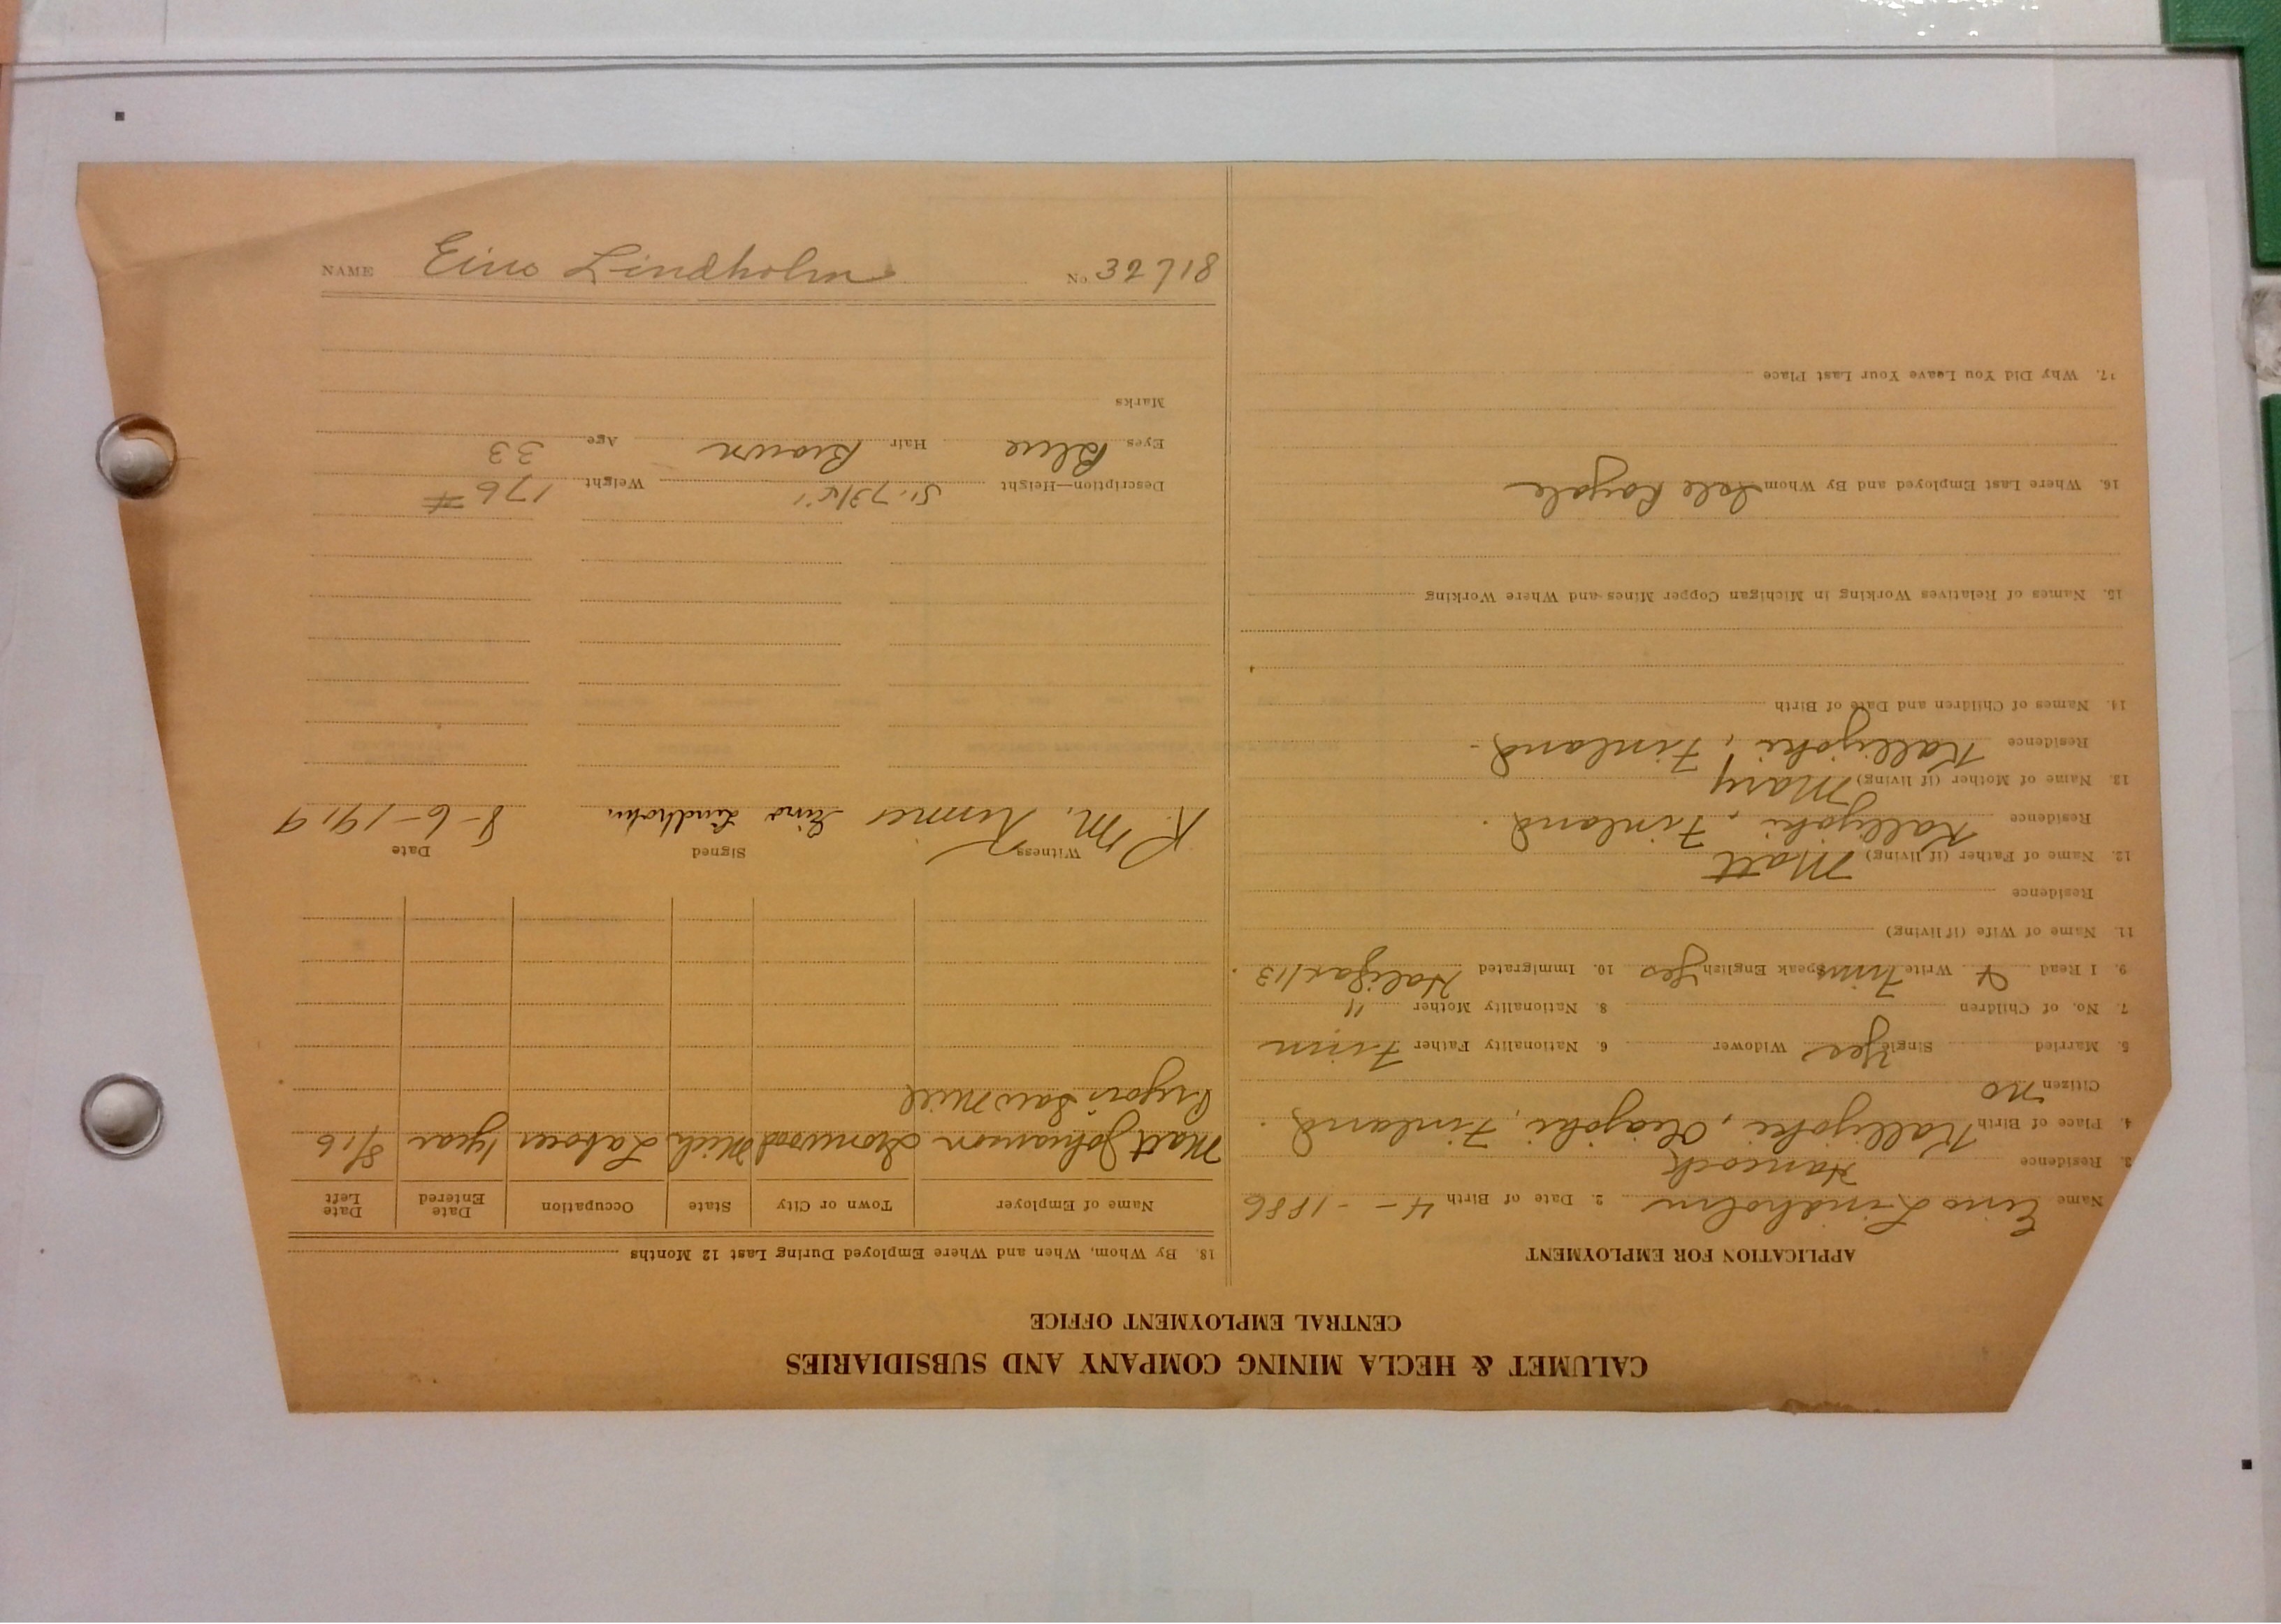 CALUMET & HECLA MINING COMPANY AND SUBSIDIARIES
CENTRAL EMPLOYMENT OFFICE
APPLICATION FOR EMPLOYMENT
Name Eino Lindholm 2. Date of Birth 4 - - 1886
3. Residence Hancock
4. Place of Birth Kalijoki, Finland.
Citizen no
5. Married Single Yes Widower 6. Nationality Father Finn
7. No. of Children 8. Nationality Mother "
9. I Read & Write Finn Speak English Yes 10. Immigrated Halifax/13
11. Name of Wife (if living)
Residence
12. Name of Father (if living) Matt
Residence Kalijoki, Finland.
13. Name of Mother (if living) Mary
Residence Kalijoki, Finland.
14. Names of Children and Date of Birth
15. Names of Relatives Working in Michigan Copper Mines and Where Working
16. Where Last Employed and By Whom Isle Royale
17. Why Did You Leave Your Last Place
18. By Whom, When and Where Employed During Last 12 Months
Name of Employer Town or City State Occupation Date Entered Date Left
Matt Johanson Ironwood Mich Laborer 1 year 8/16
Saw Mill
Witness Signed Date
R. M. Eino Lindholm 8-6-1919
Description—Height 5'.7 3/4" Weight 176 #
Eyes Blue Hair Brown Age 33
Marks
NAME Eino Lindholm No. 32718